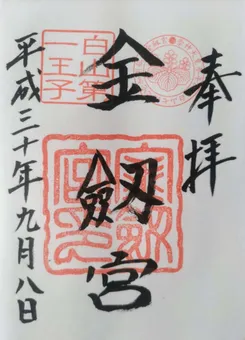 奉拝
白山第
一王子
金劔宮
平成三十年九月八日